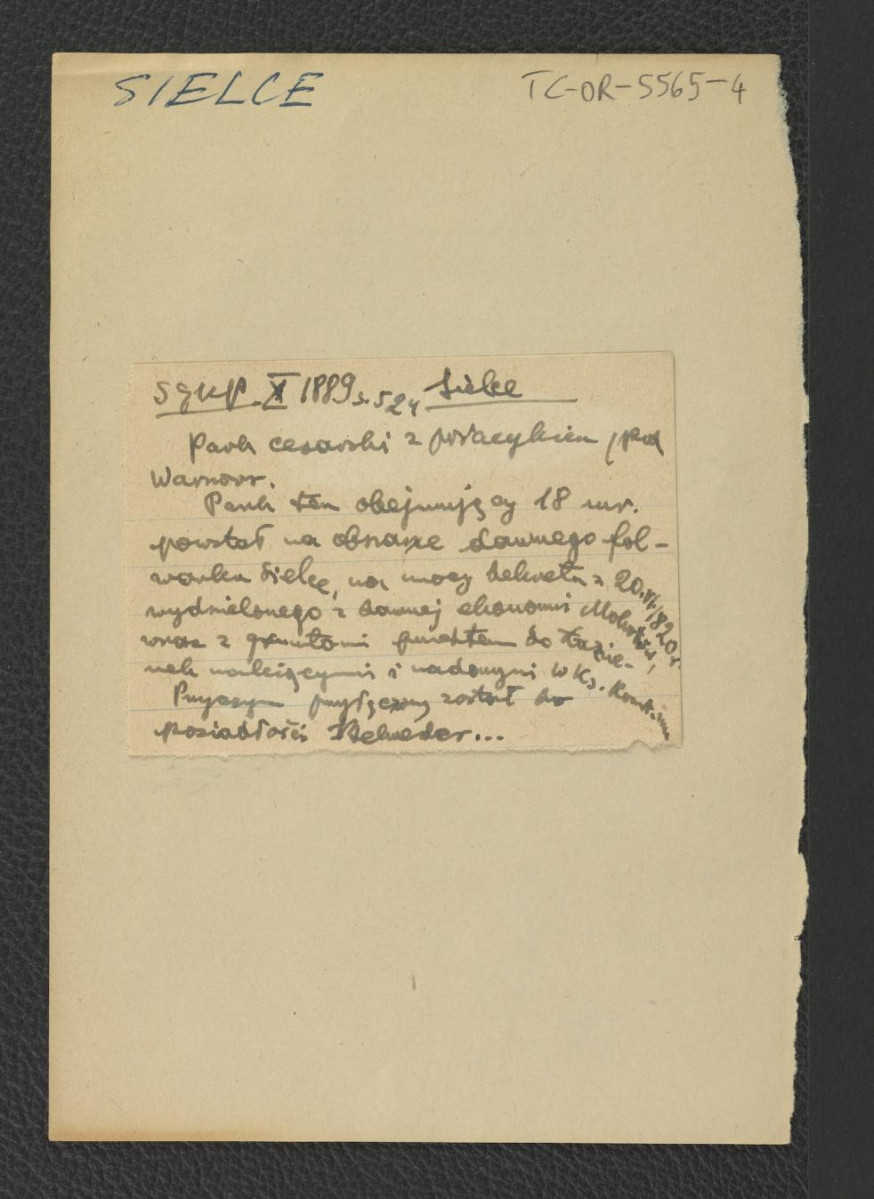 SIELCE
TC-OR-5565-4
SGKP. X 1889 s. 524 Sielce
Park cesarski z pałacykiem, pod
Warszaw.
Park ten obejmujący 18 mr.
powstał na obszarze dawnego fol-
warku Sielce, na mocy dekretu z 20.VI.1820 r.
wydzielonego z dawnej ekonomii Mokotów,
wraz z gruntami przedtem do Łazie-
nek należącymi i nadanymi W. Ks. Konstant.
przyłączony został do
posiadłości Belweder...